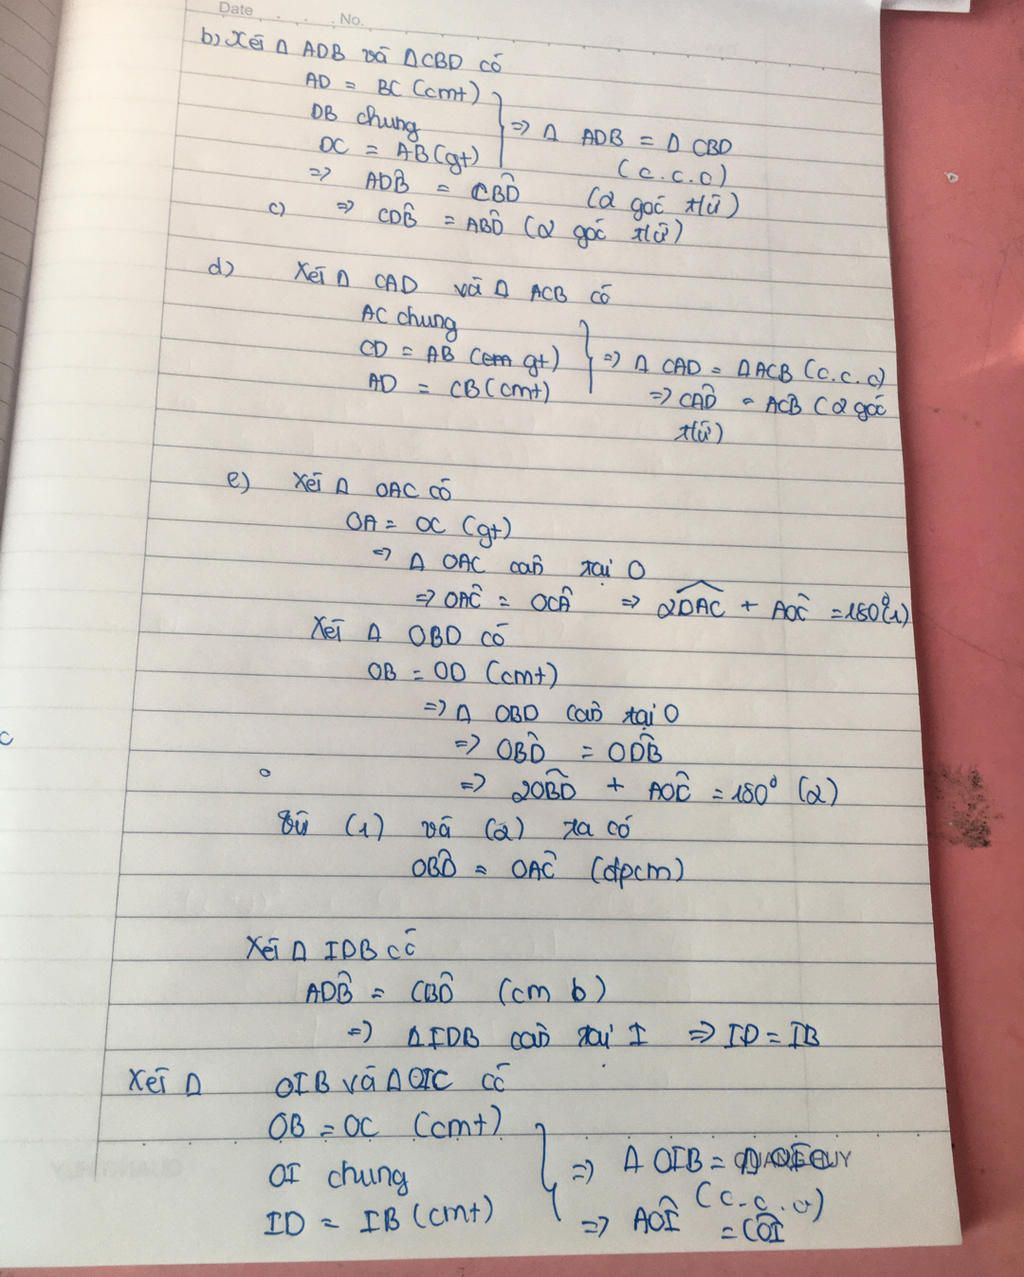 Date . . . . . No.
b) Xét Δ ADB và ΔCBD có
AD = BC (cmt)
DB chung
DC = AB (gt)
=> Δ ADB = Δ CBD
(c.c.c)
=> ADB̂ = CBD̂ (2 góc t/ứ)
c) => CDB̂ = ABD̂ (2 góc t/ứ)
d) Xét Δ CAD và Δ ACB có
AC chung
CD = AB (cm gt)
AD = CB (cmt)
=> Δ CAD = ΔACB (c.c.c)
=> CAD̂ = ACB̂ (2 góc
t/ứ)
e) Xét Δ OAC có
OA = OC (gt)
=> Δ OAC cân tại O
=> OAĈ = OCÂ => 2OAC + AOĈ = 180°(1)
Xét Δ OBD có
OB = OD (cmt)
=> Δ OBD cân tại O
=> OBD̂ = ODB̂
=> 2OBD̂ + AOĈ = 180° (2)
Từ (1) và (2) ta có
OBD̂ = OAĈ (đpcm)
Xét Δ IDB có
ADB̂ = CBD̂ (cm b)
=> ΔIDB cân tại I => ID = IB
Xét Δ OIB và ΔOIC có
OB = OC (cmt)
OI chung
ID = IB (cmt)
=> Δ OIB = Δ
(c.c.c)
=> AOÎ = COÎ